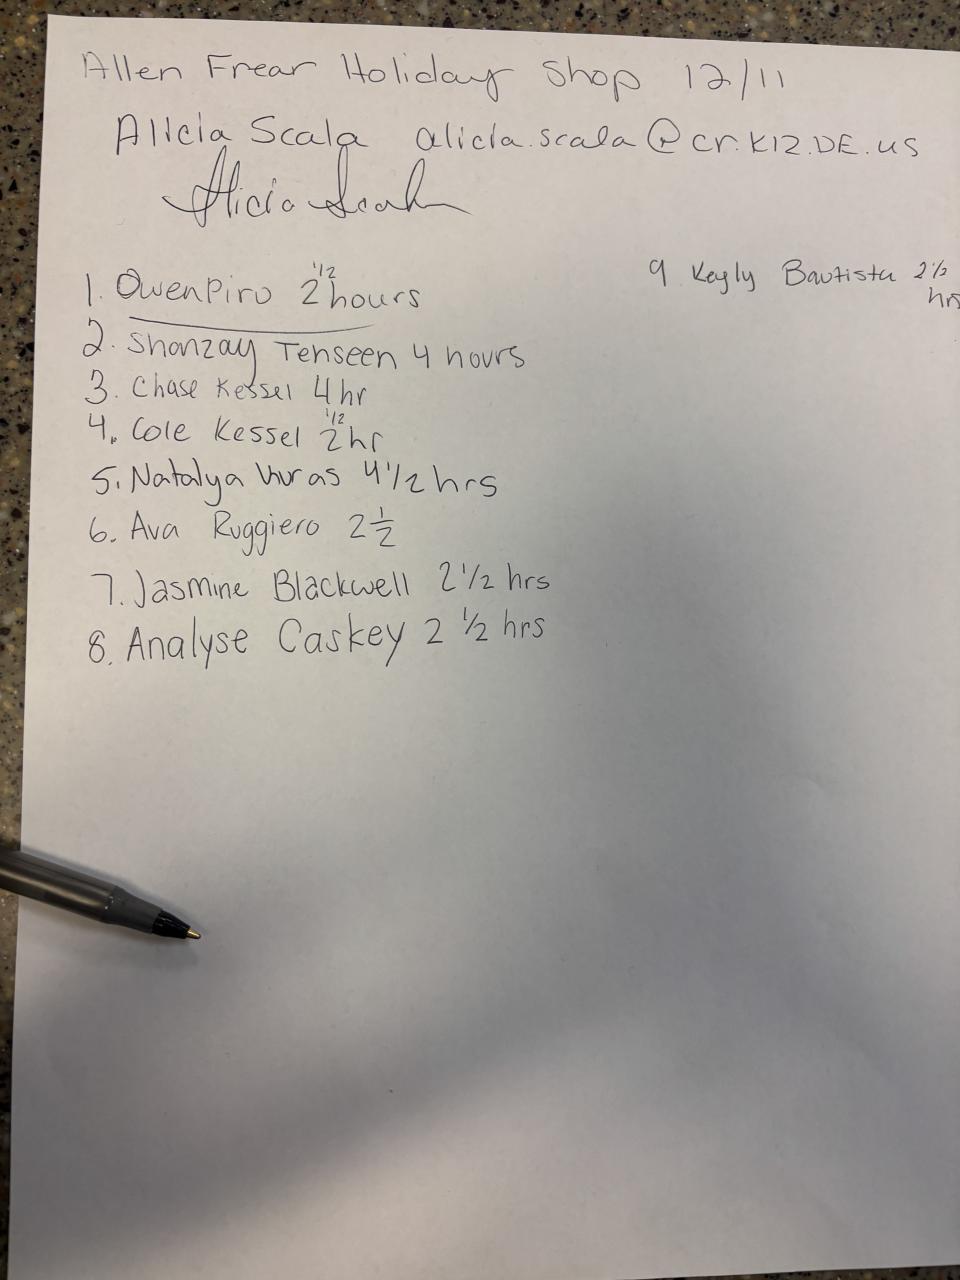 Allen Frear Holiday Shop 12/11
Alicia Scala alicia.scala@cr.K12.DE.us
Alicia Scala
1. Owen Piro 2 1/2 hours
2. Shanzay Tehseen 4 hours
3. Chase Kessel 4 hr
4. Cole Kessel 2 1/2 hr
5. Natalya 4 1/2 hrs
6. Ava Ruggiero 2 1/2
7. Jasmine Blackwell 2 1/2 hrs
8. Analyse Caskey 2 1/2 hrs
9 Keyly Bautista 2 1/2
hrs